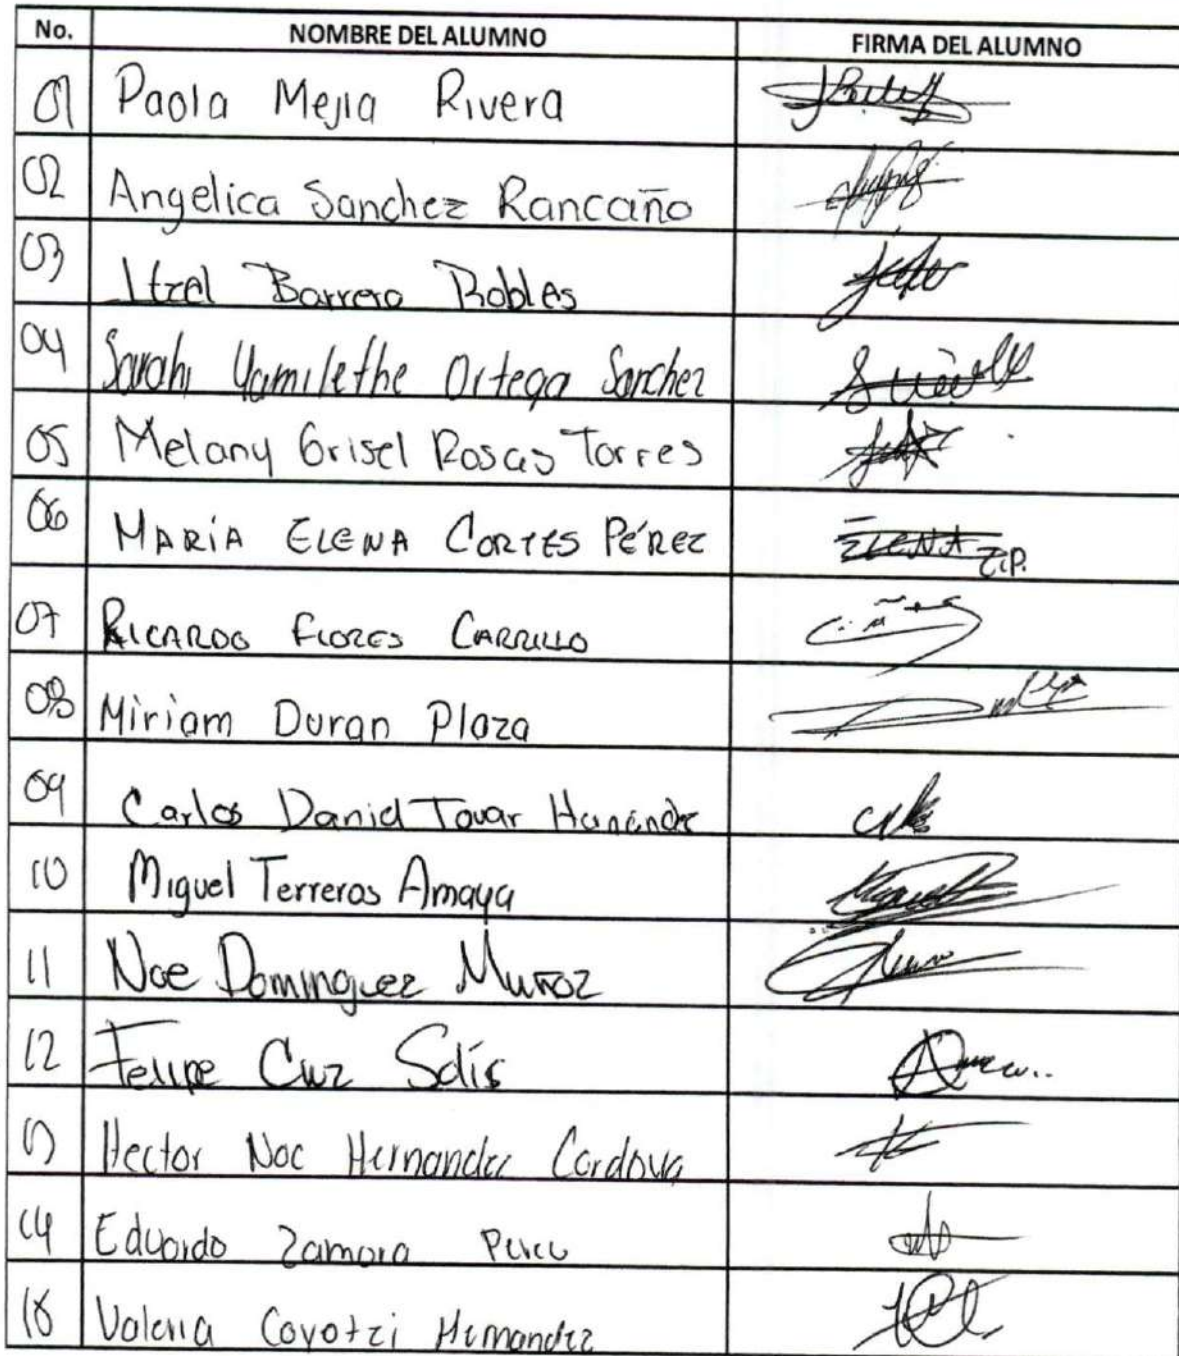 No. NOMBRE DEL ALUMNO FIRMA DEL ALUMNO
01 Paola Mejia Rivera
02 Angelica Sanchez Rancaño
03 Itzel Barrera Robles
04 Sarahi Yamilethe Ortega Sanchez
05 Melany Grisel Rosas Torres
06 MARÍA ELENA CORTES PÉREZ ELENA C.P.
07 RICARDO FLORES CARRILLO
08 Miriam Duran Plaza
09 Carlos Daniel Tovar Hernandez
10 Miguel Terreros Amaya
11 Noe Dominguez Muñoz
12 Felipe Cruz Solís
13 Hector Noe Hernandez Cordova
14 Eduardo Zamora
15 Valeria Coyotzi Hernandez